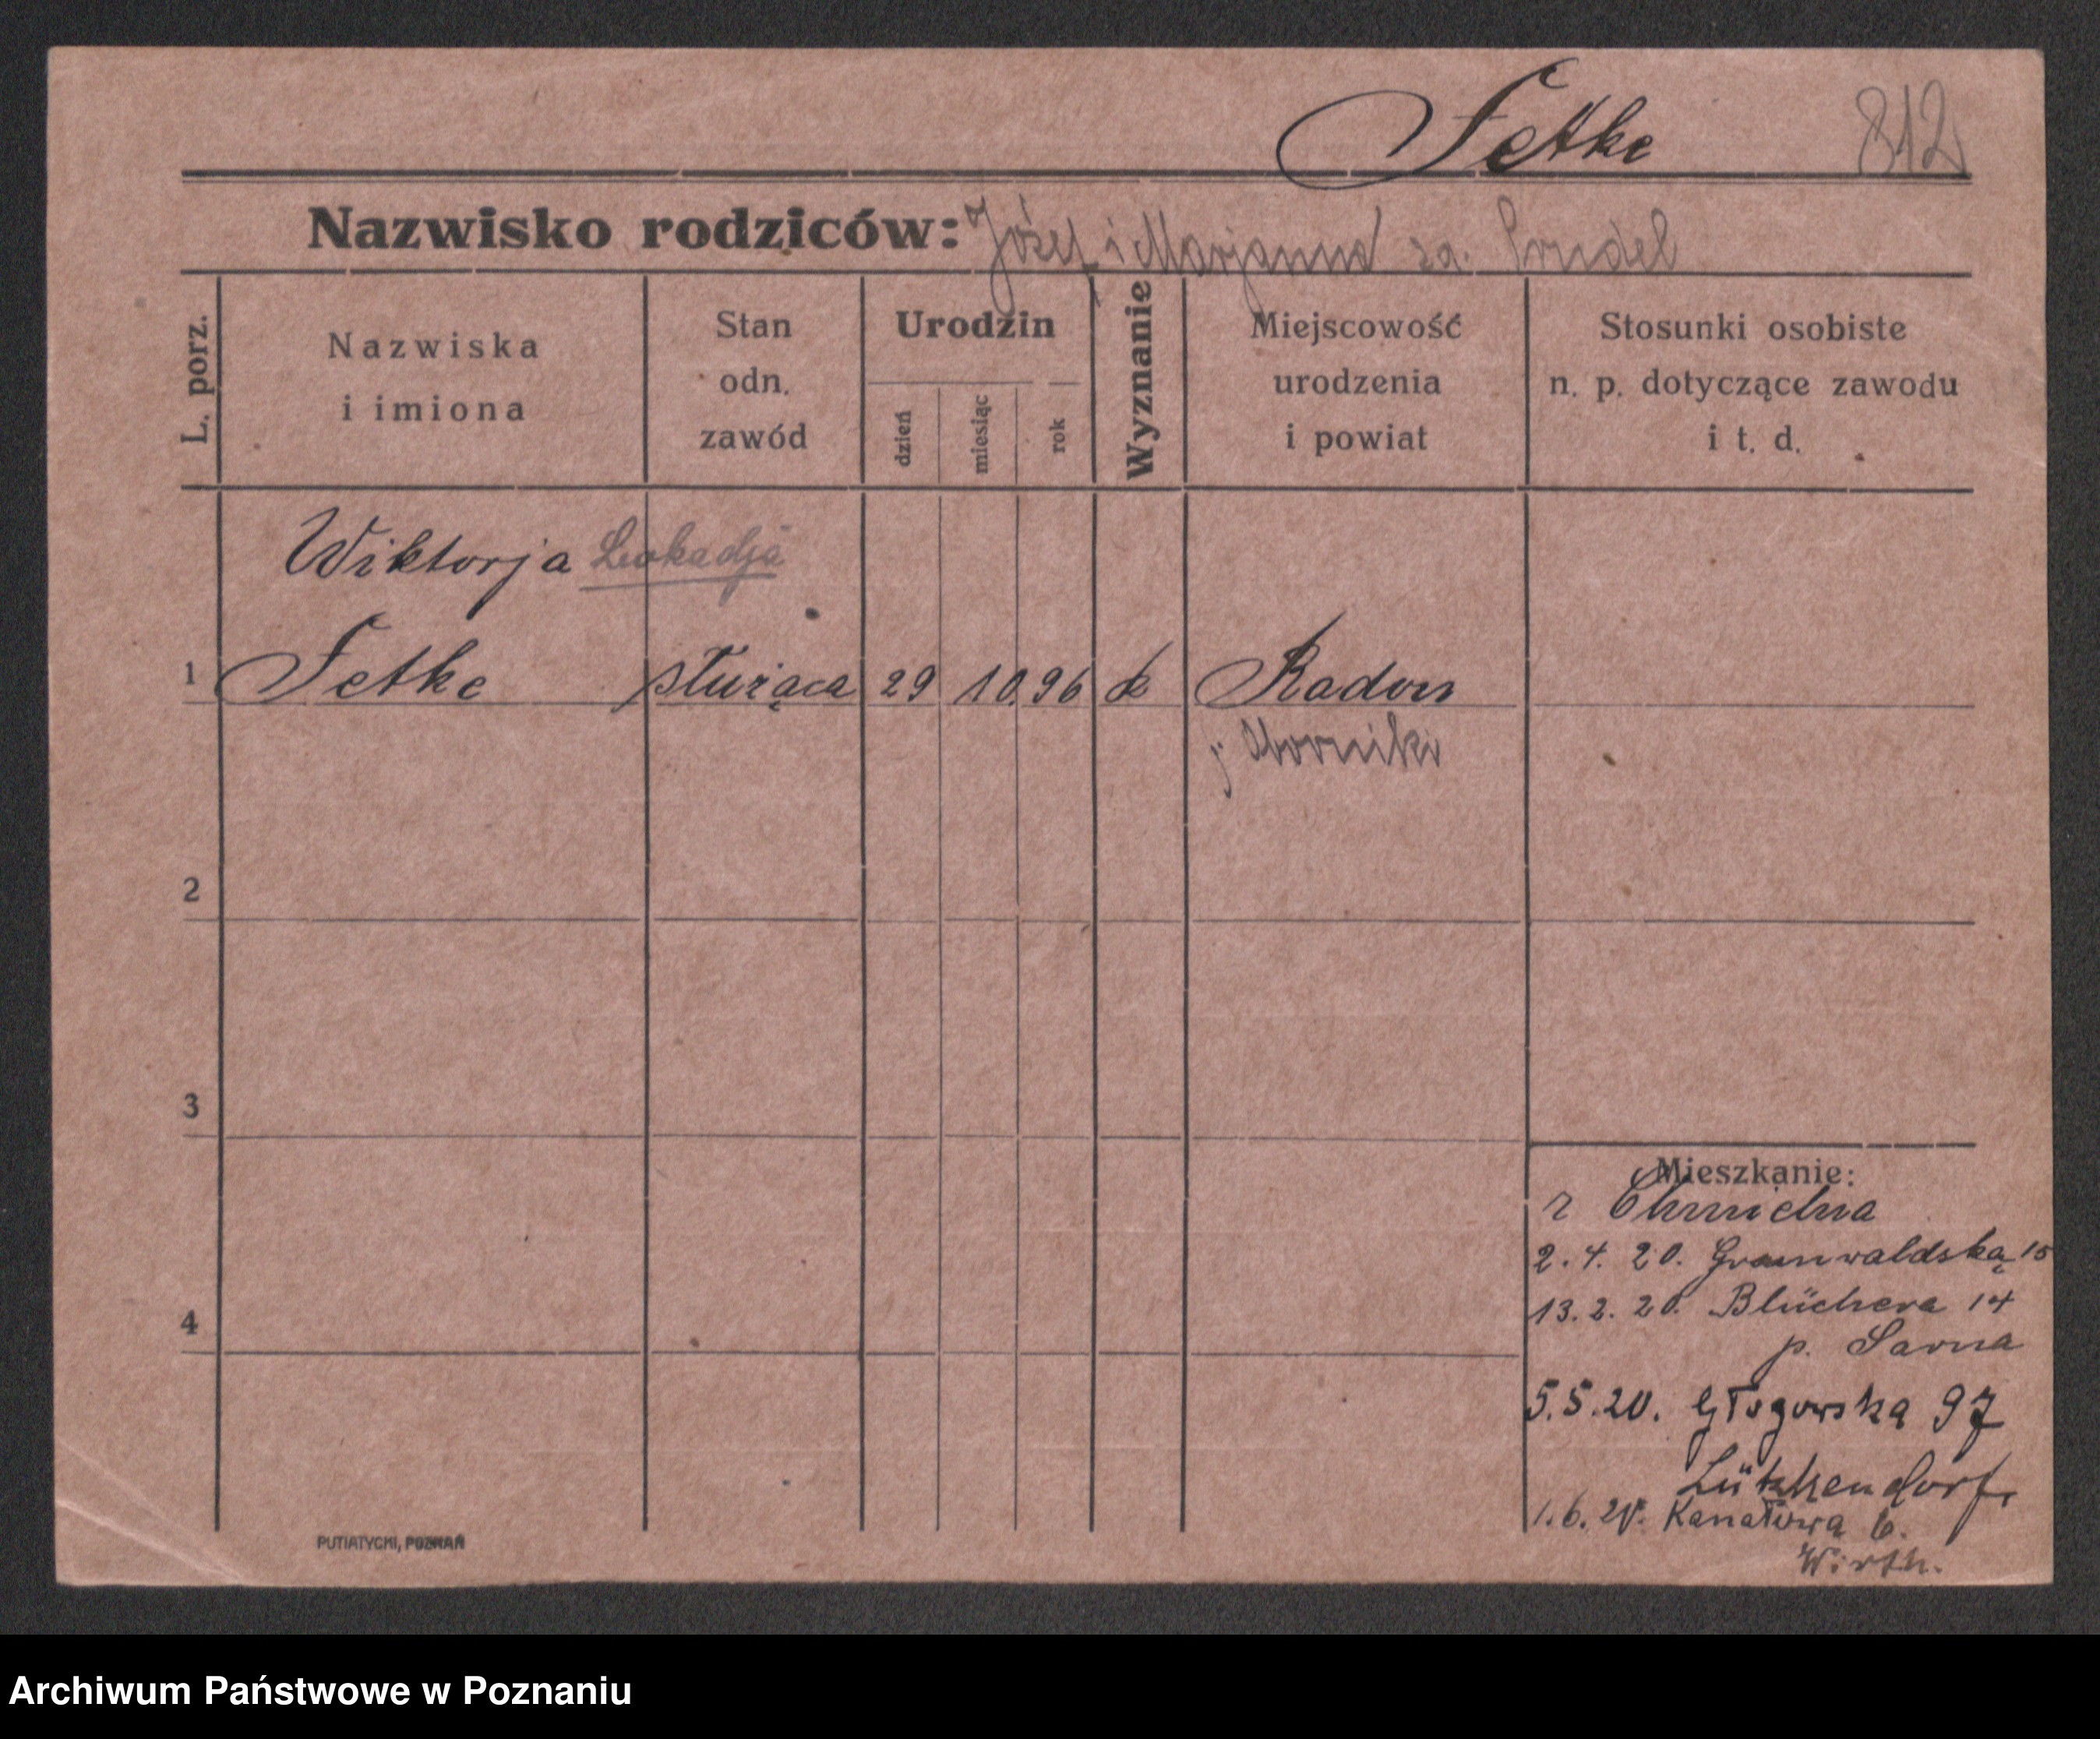 Fetke 812
Nazwisko rodziców: Józef i Marjanna za.
L. porz.
Nazwiska
i imiona
Stan
odn.
zawód
Urodzin
dzień
miesiąc
rok
Wyznanie
Miejscowość
urodzenia
i powiat
Stosunki osobiste
n. p. dotyczące zawodu
i t. d.
Wiktorja Leokadja
1 Fetke służąca 29 10. 96 k Radom
p Oborniki
2
3
4
Mieszkanie:
z Chmielna
2. 4. 20. Grunwaldska 15
13. 2. 20. Blüchera 14
p. Sarna
5. 5. 20. Głogowska 97
Lützkendorf.
1. 6. 20. Kanałowa 6.
Wirth.
PUTIATYCKI, POZNAŃ
Archiwum Państwowe w Poznaniu